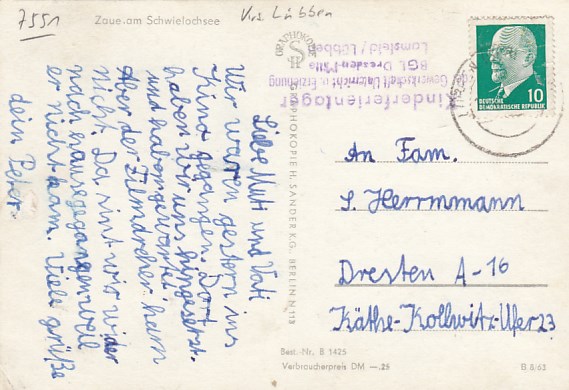 7551
Zaue am Schwielochsee
Krs. Lübben
Liebe Muti und Vati
Wir waren gestern ins
Kino gegangen. Dort
haben wir uns hingesetzt
und habengewartet
Aber der Filmdreher kam
Nicht. Da sint wir wider
nach hrausgegangenweil
er nicht kam. Viele grüße
dein Peter
GRAPHOKOPIE
GRAPHOKOPIE H. SANDER KG. BERLIN N 113
Kinderferienlager
Gewerkschaft Unterricht u. Erziehung
BGL Dresden-Mitte
Lamsfeld / Lübben
DEUTSCHE
DEMOKRATISCHE REPUBLIK
10
An Fam.
S. Herrmmann
Dresten A-16
Käthe-Kollwitz-Ufer 23
Best.-Nr. B 1425
Verbraucherpreis DM —.25
B 8/63